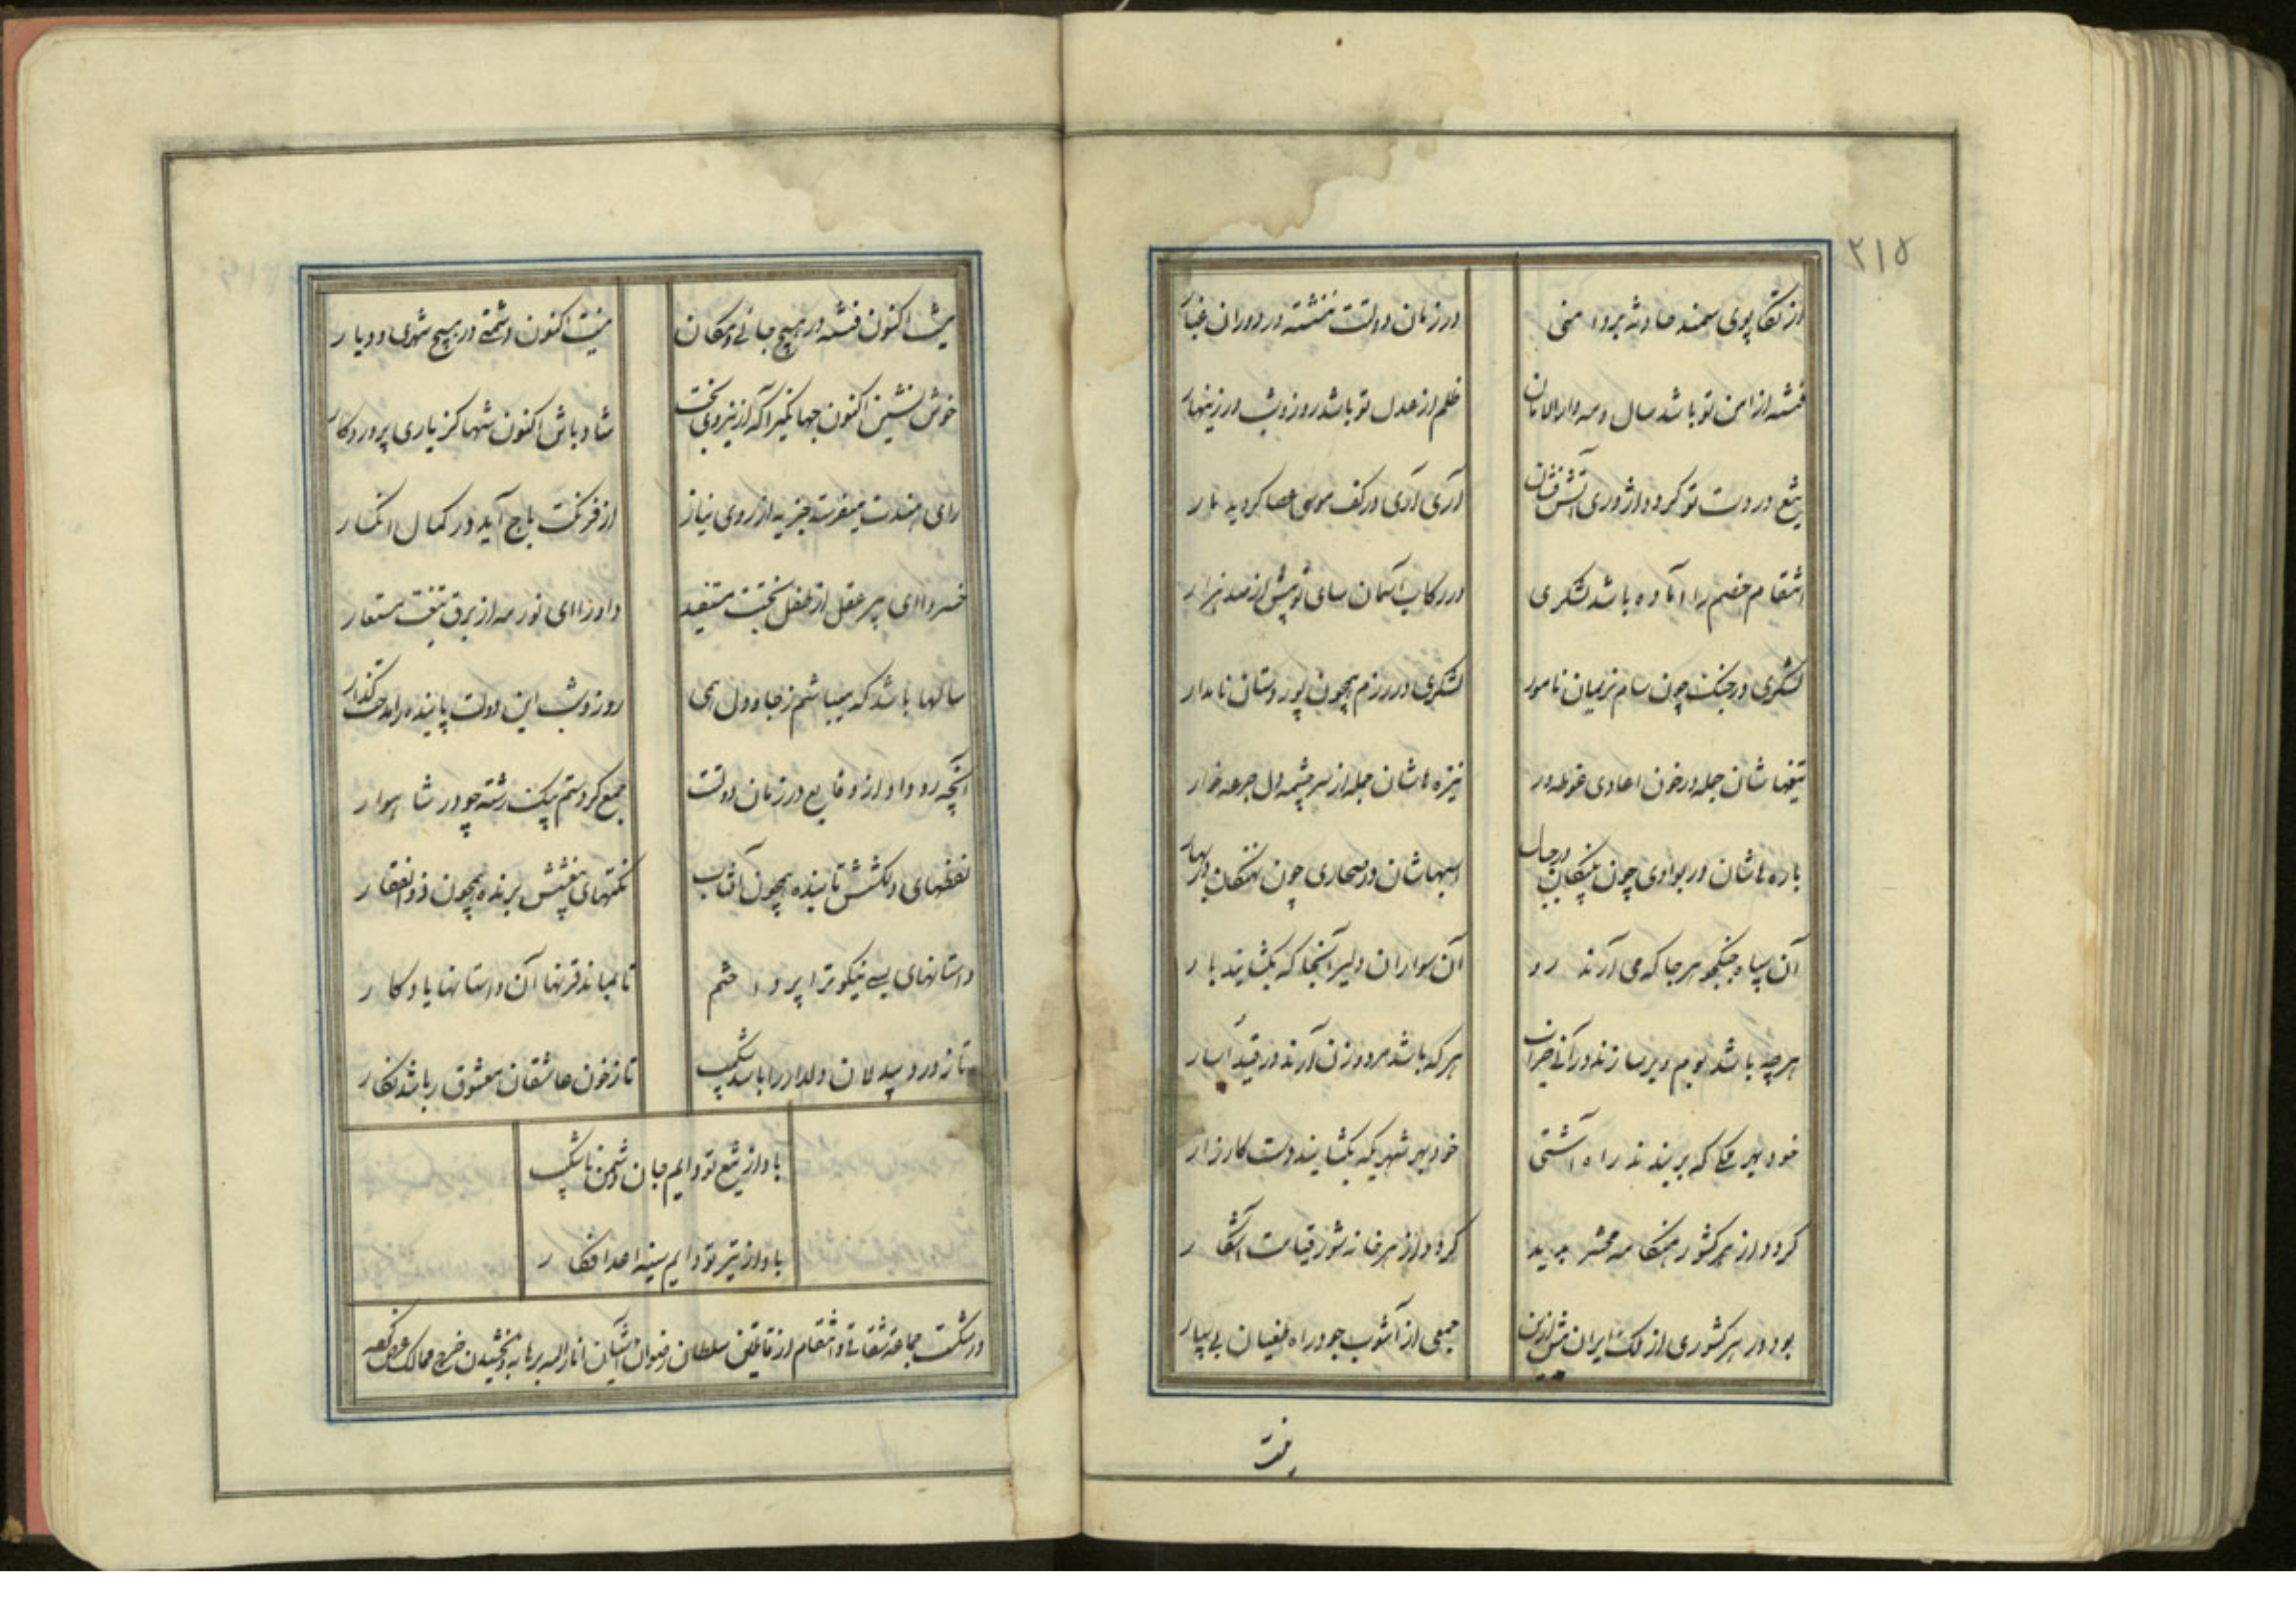 ۲۱۵
از تکاپوی سمند حادثه بر دامنی
در زمان دولتت ننشسته در دوران غبار
فتنه از امن تو باشد سال و مه دار الامان
ظلم از عدل تو باشد روز و شب در زینهار
تیغ در دست تو گردد اژدری آتش فشان
آری آری در کف موسی عصا گردید مار
انتقام خصم را آماده باشد لشکری
در رکاب آسمان سای تو بیش از صد هزار
لشکری در جنگ چون سام نریمان نامور
لشکری در رزم همچون پور دستان نامدار
تیغهاشان جمله در خون اعادی غوطه ور
نیزه هاشان جمله از سرچشمه دل جرعه خوار
باره هاشان در بوادی چون پلنگان در جبال
اسبهاشان در صحاری چون نهنگان در بحار
آن سپاه جنگجو هر جا که می آرند رو
آن سواران دلیر آنجا که بگشایند بار
هر چه باشد بوم و بر سازند در آنی خراب
هر که باشد مرد و زن آرند در قید اسار
خود بهر ملکی که بر بندند راه آشتی
خود بهر شهری که بگشایند دست کارزار
گردد از هر کشور هنگامه محشر پدید
گردد از هر خانه شور قیامت آشکار
بود در هر کشوری از ملک ایران پیش ازین
جمعی از آشوب جو در راه طغیان پی سپار
نیست
نیست اکنون فتنه در هیچ جائی و مکان
نیست اکنون دشمنی در هیچ شهری و دیار
خوش نشین اکنون جهانگیرا که از نیروی بخت
شاد باش اکنون شها کز یاری پروردگار
رای هندت میفرستد جزیه از روی نیاز
از فرنگت باج آید در کمال انکسار
خسروا ای پیر عقل از طفل بختت مستفید
داورا ای نور مه از برق تیغت مستعار
سالها باشد که میباشم ز جان و دل همی
روز و شب این دولت پاینده را مدحت گذار
آنچه رو داد از وقایع در زمان دولتت
جمع کردستم بیک رشته چو در شاهوار
لفظهای دلکشش تابنده همچون آفتاب
نکتهای نغزش برنده همچون ذوالفقار
داستانهای بسی نیکوترا پرداختم
تا بماند قرنها آن داستانها یادگار
تا ز درد بیدلان دلدار را باشد شکیب
تا ز خون عاشقان معشوق را باشد نگار
باد از تیغ تو دایم جان دشمن ناشکیب
باد از تیر تو دایم سینه اعدا فکار
در شکست جماعه شقاقی و انتقام از قاتلین سلطان رضوان آشیان انار الله برهانه و بخشیدن خرج ممالک محروسه